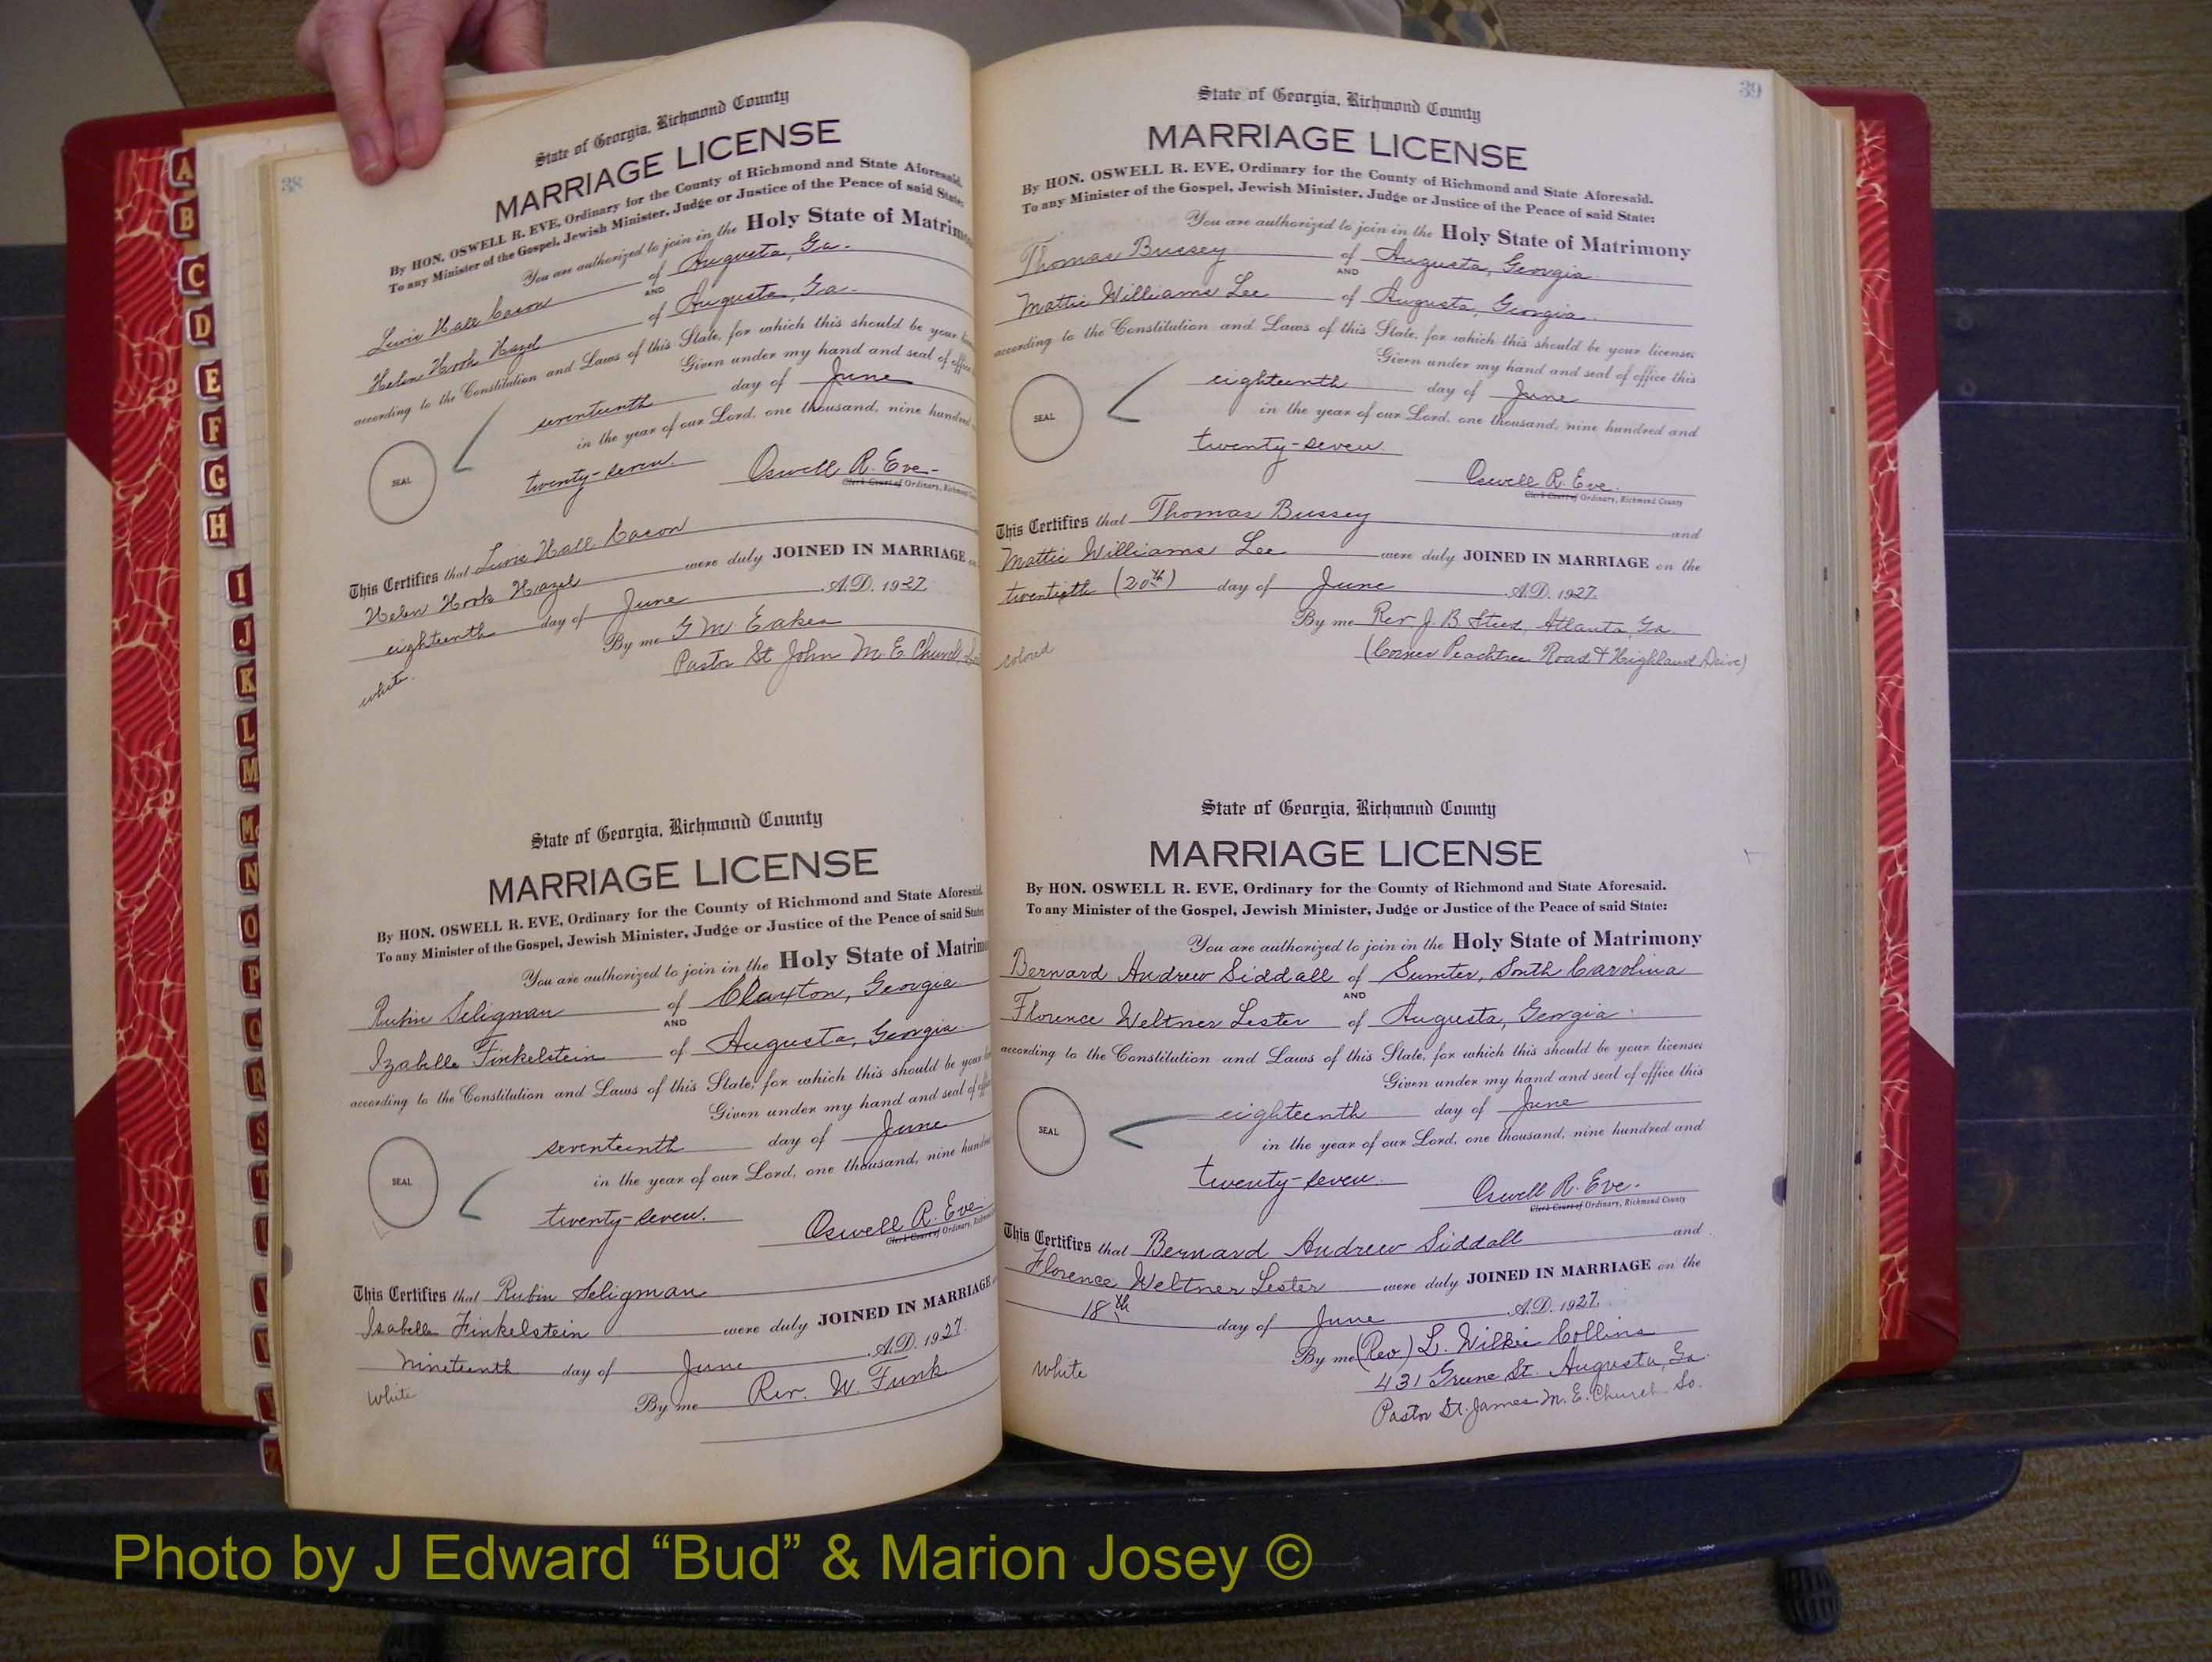 38
State of Georgia, Richmond County
MARRIAGE LICENSE
By HON. OSWELL R. EVE, Ordinary for the County of Richmond and State Aforesaid.
To any Minister of the Gospel, Jewish Minister, Judge or Justice of the Peace of said State:
You are authorized to join in the Holy State of Matrim
Hall Bacon of Augusta, Ga.
AND
Helen Hook Hazel of Augusta, Ga.
according to the Constitution and Laws of this State, for which this should be your
Given under my hand and seal of office
SEAL
seventeenth day of June
in the year of our Lord, one thousand, nine hundred
twenty-seven.
Oswell R. Eve
Clerk Court of Ordinary, Richmond
This Certifies that Hall Bacon
Helen Hook Hazel were duly JOINED IN MARRIAGE
eighteenth day of June A.D. 1927
By me G M Eakes
Pastor St John M. E. Church
white.
State of Georgia, Richmond County
MARRIAGE LICENSE
By HON. OSWELL R. EVE, Ordinary for the County of Richmond and State Aforesaid.
To any Minister of the Gospel, Jewish Minister, Judge or Justice of the Peace of said State:
You are authorized to join in the Holy State of Matrim
Rubin Seligman of Claxton, Georgia
AND
Izabelle Finkelstein of Augusta, Georgia
according to the Constitution and Laws of this State, for which this should be your
Given under my hand and seal of
SEAL
seventeenth day of June
in the year of our Lord, one thousand, nine hundred
twenty-seven.
Oswell R. Eve
Clerk Court of Ordinary,
This Certifies that Rubin Seligman
Isabelle Finkelstein were duly JOINED IN MARRIAGE
Nineteenth day of June A.D. 1927.
White
By me Rev. W. Funk
39
State of Georgia, Richmond County
MARRIAGE LICENSE
By HON. OSWELL R. EVE, Ordinary for the County of Richmond and State Aforesaid.
To any Minister of the Gospel, Jewish Minister, Judge or Justice of the Peace of said State:
You are authorized to join in the Holy State of Matrimony
Thomas Bussey of Augusta, Georgia
AND
Mattie Williams Lee of Augusta, Georgia
according to the Constitution and Laws of this State, for which this should be your license:
Given under my hand and seal of office this
SEAL
eighteenth day of June
in the year of our Lord, one thousand, nine hundred and
twenty-seven.
Oswell R. Eve.
Clerk Court of Ordinary, Richmond County
This Certifies that Thomas Bussey and
Mattie Williams Lee were duly JOINED IN MARRIAGE on the
twentieth (20th) day of June A.D. 1927.
By me Rev. J. B. Atlanta, Ga.
(Corner Peachtree Road & Highland Drive)
colored
State of Georgia, Richmond County
MARRIAGE LICENSE
By HON. OSWELL R. EVE, Ordinary for the County of Richmond and State Aforesaid.
To any Minister of the Gospel, Jewish Minister, Judge or Justice of the Peace of said State:
You are authorized to join in the Holy State of Matrimony
Bernard Andrew Siddall of Sumter, South Carolina
AND
Florence Weltner Lester of Augusta, Georgia.
according to the Constitution and Laws of this State, for which this should be your license:
Given under my hand and seal of office this
SEAL
eighteenth day of June
in the year of our Lord, one thousand, nine hundred and
twenty-seven.
Oswell R. Eve.
Clerk Court of Ordinary, Richmond County
This Certifies that Bernard Andrew Siddall and
Florence Weltner Lester were duly JOINED IN MARRIAGE on the
18th day of June A.D. 1927.
By me (Rev) L. Wilkie Collins
White
431 Greene St. Augusta, Ga.
Pastor St. James M. E. Church So.
A
B
C
D
E
F
G
H
I
J
K
L
M
Mc
N
O
P
Q
R
S
T
U
V
W
Photo by J Edward “Bud” & Marion Josey ©